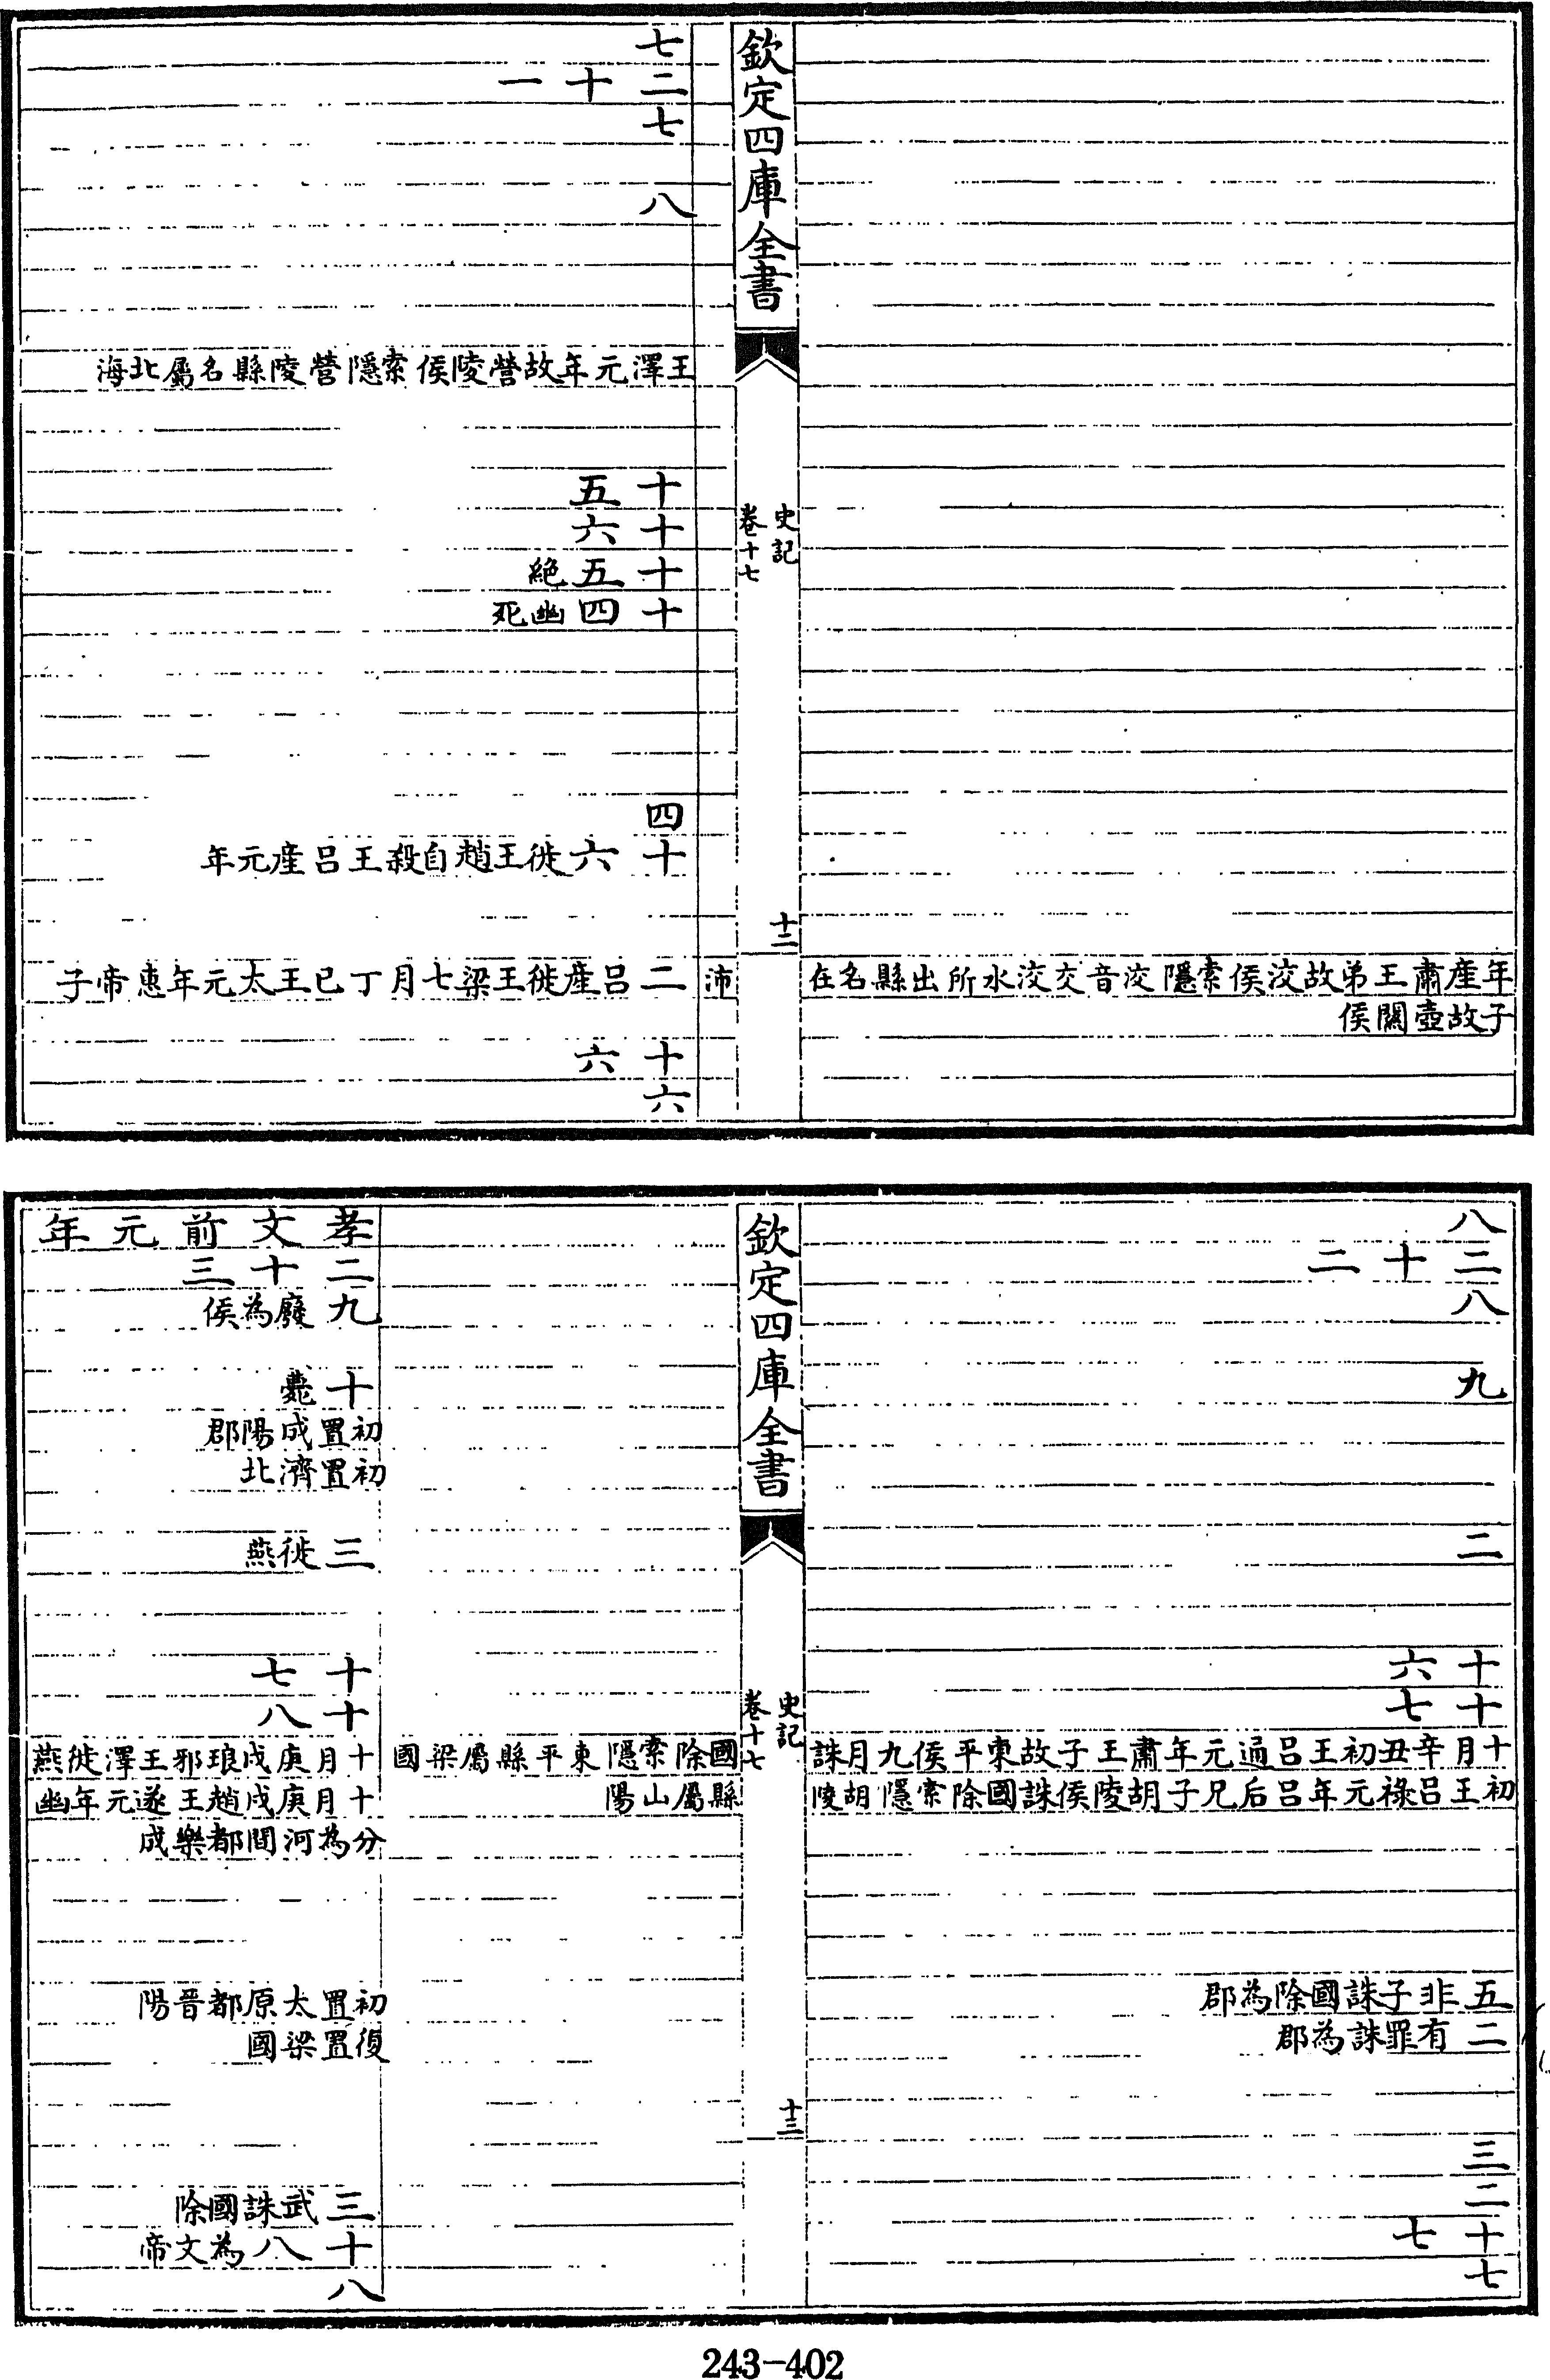 年產肅王弟故洨侯索隱洨音交洨水所出縣名在
子故壺關侯
欽定四庫全書
史記
卷十七
十二
沛
七
二十一
七
八
王澤元年故營陵侯索隱營陵縣名屬北海
十五
十六
十五絶
十四幽死
四
十六徙王趙自殺王呂產元年
二呂產徙王梁七月丁巳王太元年惠帝子
十六
六
八
二十二
八
九
二
十六
十七
十月辛丑初王呂通元年肅王子故東平侯九月誅
初王呂祿元年呂后兄子胡陵侯誅國除索隱胡陵
五非子誅國除為郡
二有罪誅為郡
三
二
十七
七
欽定四庫全書
史記
卷十七
十三
國除索隱東平縣屬梁國
縣屬山陽
孝文前元年
二十三
九廢為侯
十薨
初置成陽郡
初置濟北
三徙燕
十七
十八
十月庚戌琅邪王澤徙燕
十月庚戌趙王遂元年幽
分為河間都樂成
初置太原都晉陽
復置梁國
三武誅國除
十八為文帝
八
243-402